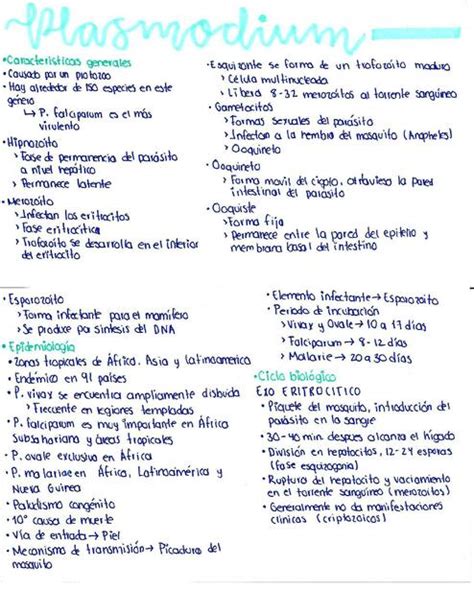 Plasmodium
• Características generales
• Causado por un protozoo
• Hay alrededor de 150 especies en este
género
↳ P. falciparum es el más
virulento
• Hipnozoito
> Fase de permanencia del parásito
a nivel hepático
> Permanece latente
• Merozoito
> Infectan los eritrocitos
> Fase eritrocítica
> Trofozoito se desarrolla en el interior
del eritrocito
• Esquizonte se forma de un trofozoito maduro
> Célula multinucleada
> Libera 8-32 merozoitos al torrente sanguíneo
• Gametocitos
> Formas sexuales del parásito
> Infectan a la hembra del mosquito (Anopheles)
> Ooquineto
• Ooquineto
> Forma movil del cigoto, atraviesa la pared
intestinal del parásito
• Ooquiste
> Forma fija
> Permanece entre la pared del epitelio y
membrana basal del intestino
• Esporozoito
> Forma infectante para el mamífero
> Se produce por sintesis del DNA
• Epidemiología
• Zonas tropicales de África, Asia y Latinoamerica
• Endémico en 91 países
• P. vivax se encuentra ampliamente disbuida
> Frecuente en regiones templadas
• P. falciparum es muy importante en África
Subsahariana y áreas tropicales
• P. ovale exclusivo en África
• P. malariae en África, Latinoamérica y
Nueva Guinea
• Paludismo congénito
• 10° causa de muerte
• Vía de entrada → Piel
• Mecanismo de transmisión → Picadura del
mosquito
• Elemento infectante → Esporozoito
• Periodo de incubación
> Vivax y Ovale → 10 a 17 días
> Falciparum → 8-12 días
> Malarie → 20 a 30 días
• Ciclo biológico
EXO ERITROCITICO
• Piquete del mosquito, introducción del
parásito en la sangre
• 30-40 min despues alcanza el hígado
• División en hepatocitos, 12-24 esporas
(fase esquizogonia)
• Ruptura del hepatocito y vaciamiento
en el torrente sanguíneo (merozoitos)
• Generalmente no da manifestaciones
clínicas (criptozoicos)